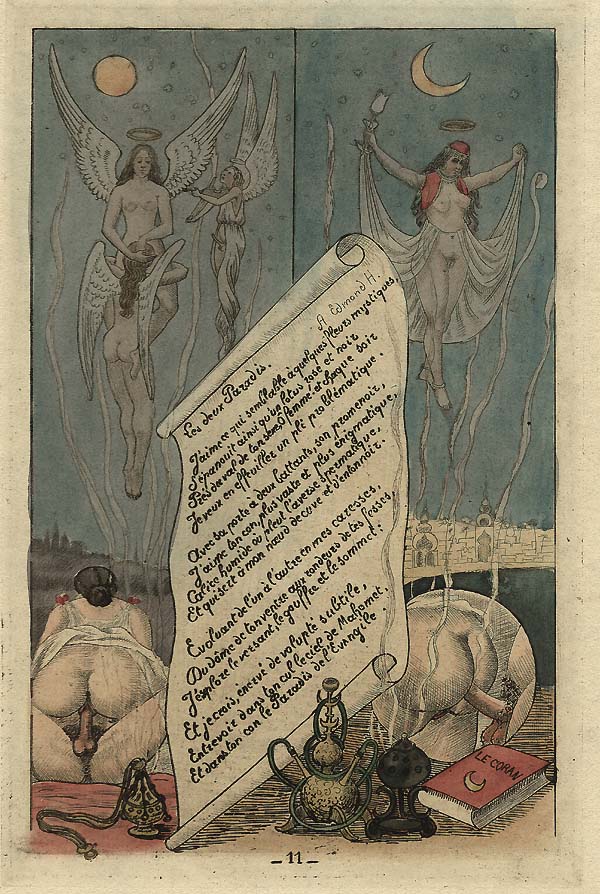 Les deux Paradis.
A Edmond H.
J'aime ce qui semblable à quelques fleurs mystiques,
S'épanouit ainsi qu'un lotus rose et noir
Près du val de ton femme et chaque soir
Je veux en effeuiller un pli problématique.
Avec sa porte à deux battants, son promenoir,
J'aime ton con plus vaste et plus énigmatique,
Calice humide où pleut l'averse spermatique,
Et qui sert à mon nœud de cuve et d'entonnoir.
Evoluant de l'un à l'autre en mes caresses,
Du dôme de ton ventre aux rondeurs de tes fesses,
J'explore le versant, le gouffre et le sommet:
Et je crois, énervé de volupté subtile,
Entrevoir dans ton cul le ciel de Mahomet,
Et dans ton con le Paradis de l'Evangile.
LE CORAN
- 11 -